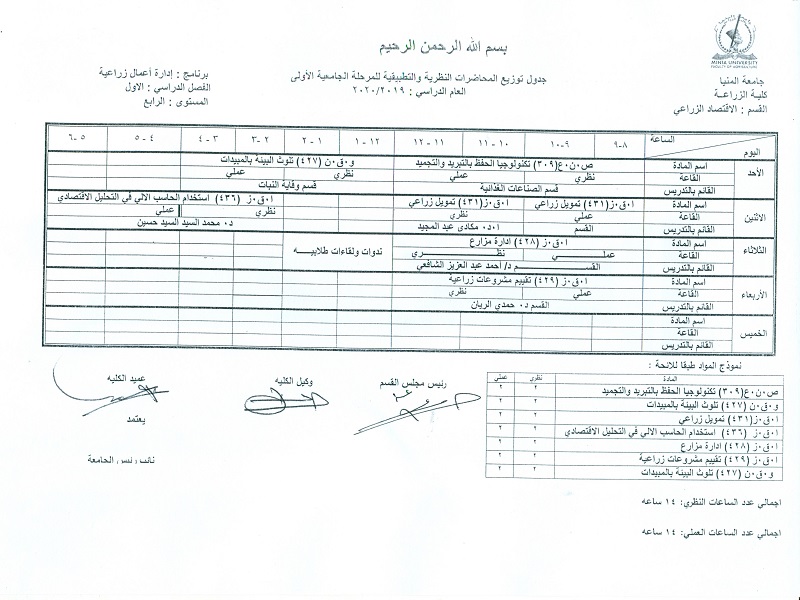 بسم الله الرحمن الرحيم
MINIA UNIVERSITY
FACULTY OF AGRICULTURE
جامعة المنيا
كلية الزراعة
القسم : الاقتصاد الزراعي
جدول توزيع المحاضرات النظرية والتطبيقية للمرحلة الجامعية الأولى
العام الدراسي : ٢٠٢٠/٢٠١٩
برنامج : إدارة أعمال زراعية
الفصل الدراسي : الاول
المستوى : الرابع
الساعة
اليوم
٨-٩ ٩-١٠ ١٠-١١ ١١-١٢ ١٢-١ ١-٢ ٢-٣ ٣-٤ ٤-٥ ٥-٦
الأحد
اسم المادة ص.ن.ع(٣٠٩) تكنولوجيا الحفظ بالتبريد والتجميد و.ق.ن (٤٢٧) تلوث البيئة بالمبيدات
القاعة نظري عملي نظري عملي
القائم بالتدريس قسم الصناعات الغذائية قسم وقاية النبات
الاثنين
اسم المادة ا.ق.ز(٤٣١) تمويل زراعي ا.ق.ز(٤٣١) تمويل زراعي ا.ق.ز (٤٣٦) استخدام الحاسب الالي في التحليل الاقتصادي
القاعة عملي نظري نظري عملي
القائم بالتدريس القسم ا.د. مكادى عبد المجيد د. محمد السيد السيد حسين
الثلاثاء
اسم المادة ا.ق.ز (٤٢٨) ادارة مزارع
القاعة عملـــي نظـــري
القائم بالتدريس القســـم د/ احمد عبد العزيز الشافعي
ندوات ولقاءات طلابيـــه
الأربعاء
اسم المادة ا.ق.ز (٤٢٩) تقييم مشروعات زراعية
القاعة عملي نظري
القائم بالتدريس القسم د. حمدي الريان
الخميس
اسم المادة
القاعة
القائم بالتدريس
نموذج المواد طبقا للائحة :
المادة نظري عملي
ص.ن.ع(٣٠٩) تكنولوجيا الحفظ بالتبريد والتجميد ٢ ٢
و.ق.ن (٤٢٧) تلوث البيئة بالمبيدات ٢ ٢
ا.ق.ز(٤٣١) تمويل زراعي ٢ ٢
ا.ق.ز (٤٣٦) استخدام الحاسب الالي في التحليل الاقتصادي ٢ ٢
ا.ق.ز (٤٢٨) ادارة مزارع ٢ ٢
ا.ق.ز (٤٢٩) تقييم مشروعات زراعية ٢ ٢
و.ق.ن (٤٢٧) تلوث البيئة بالمبيدات ٢ ٢
اجمالي عدد الساعات النظري: ١٤ ساعه
اجمالي عدد الساعات العملي: ١٤ ساعه
رئيس مجلس القسم
وكيل الكليه
عميد الكليه
يعتمد
نائب رئيس الجامعة